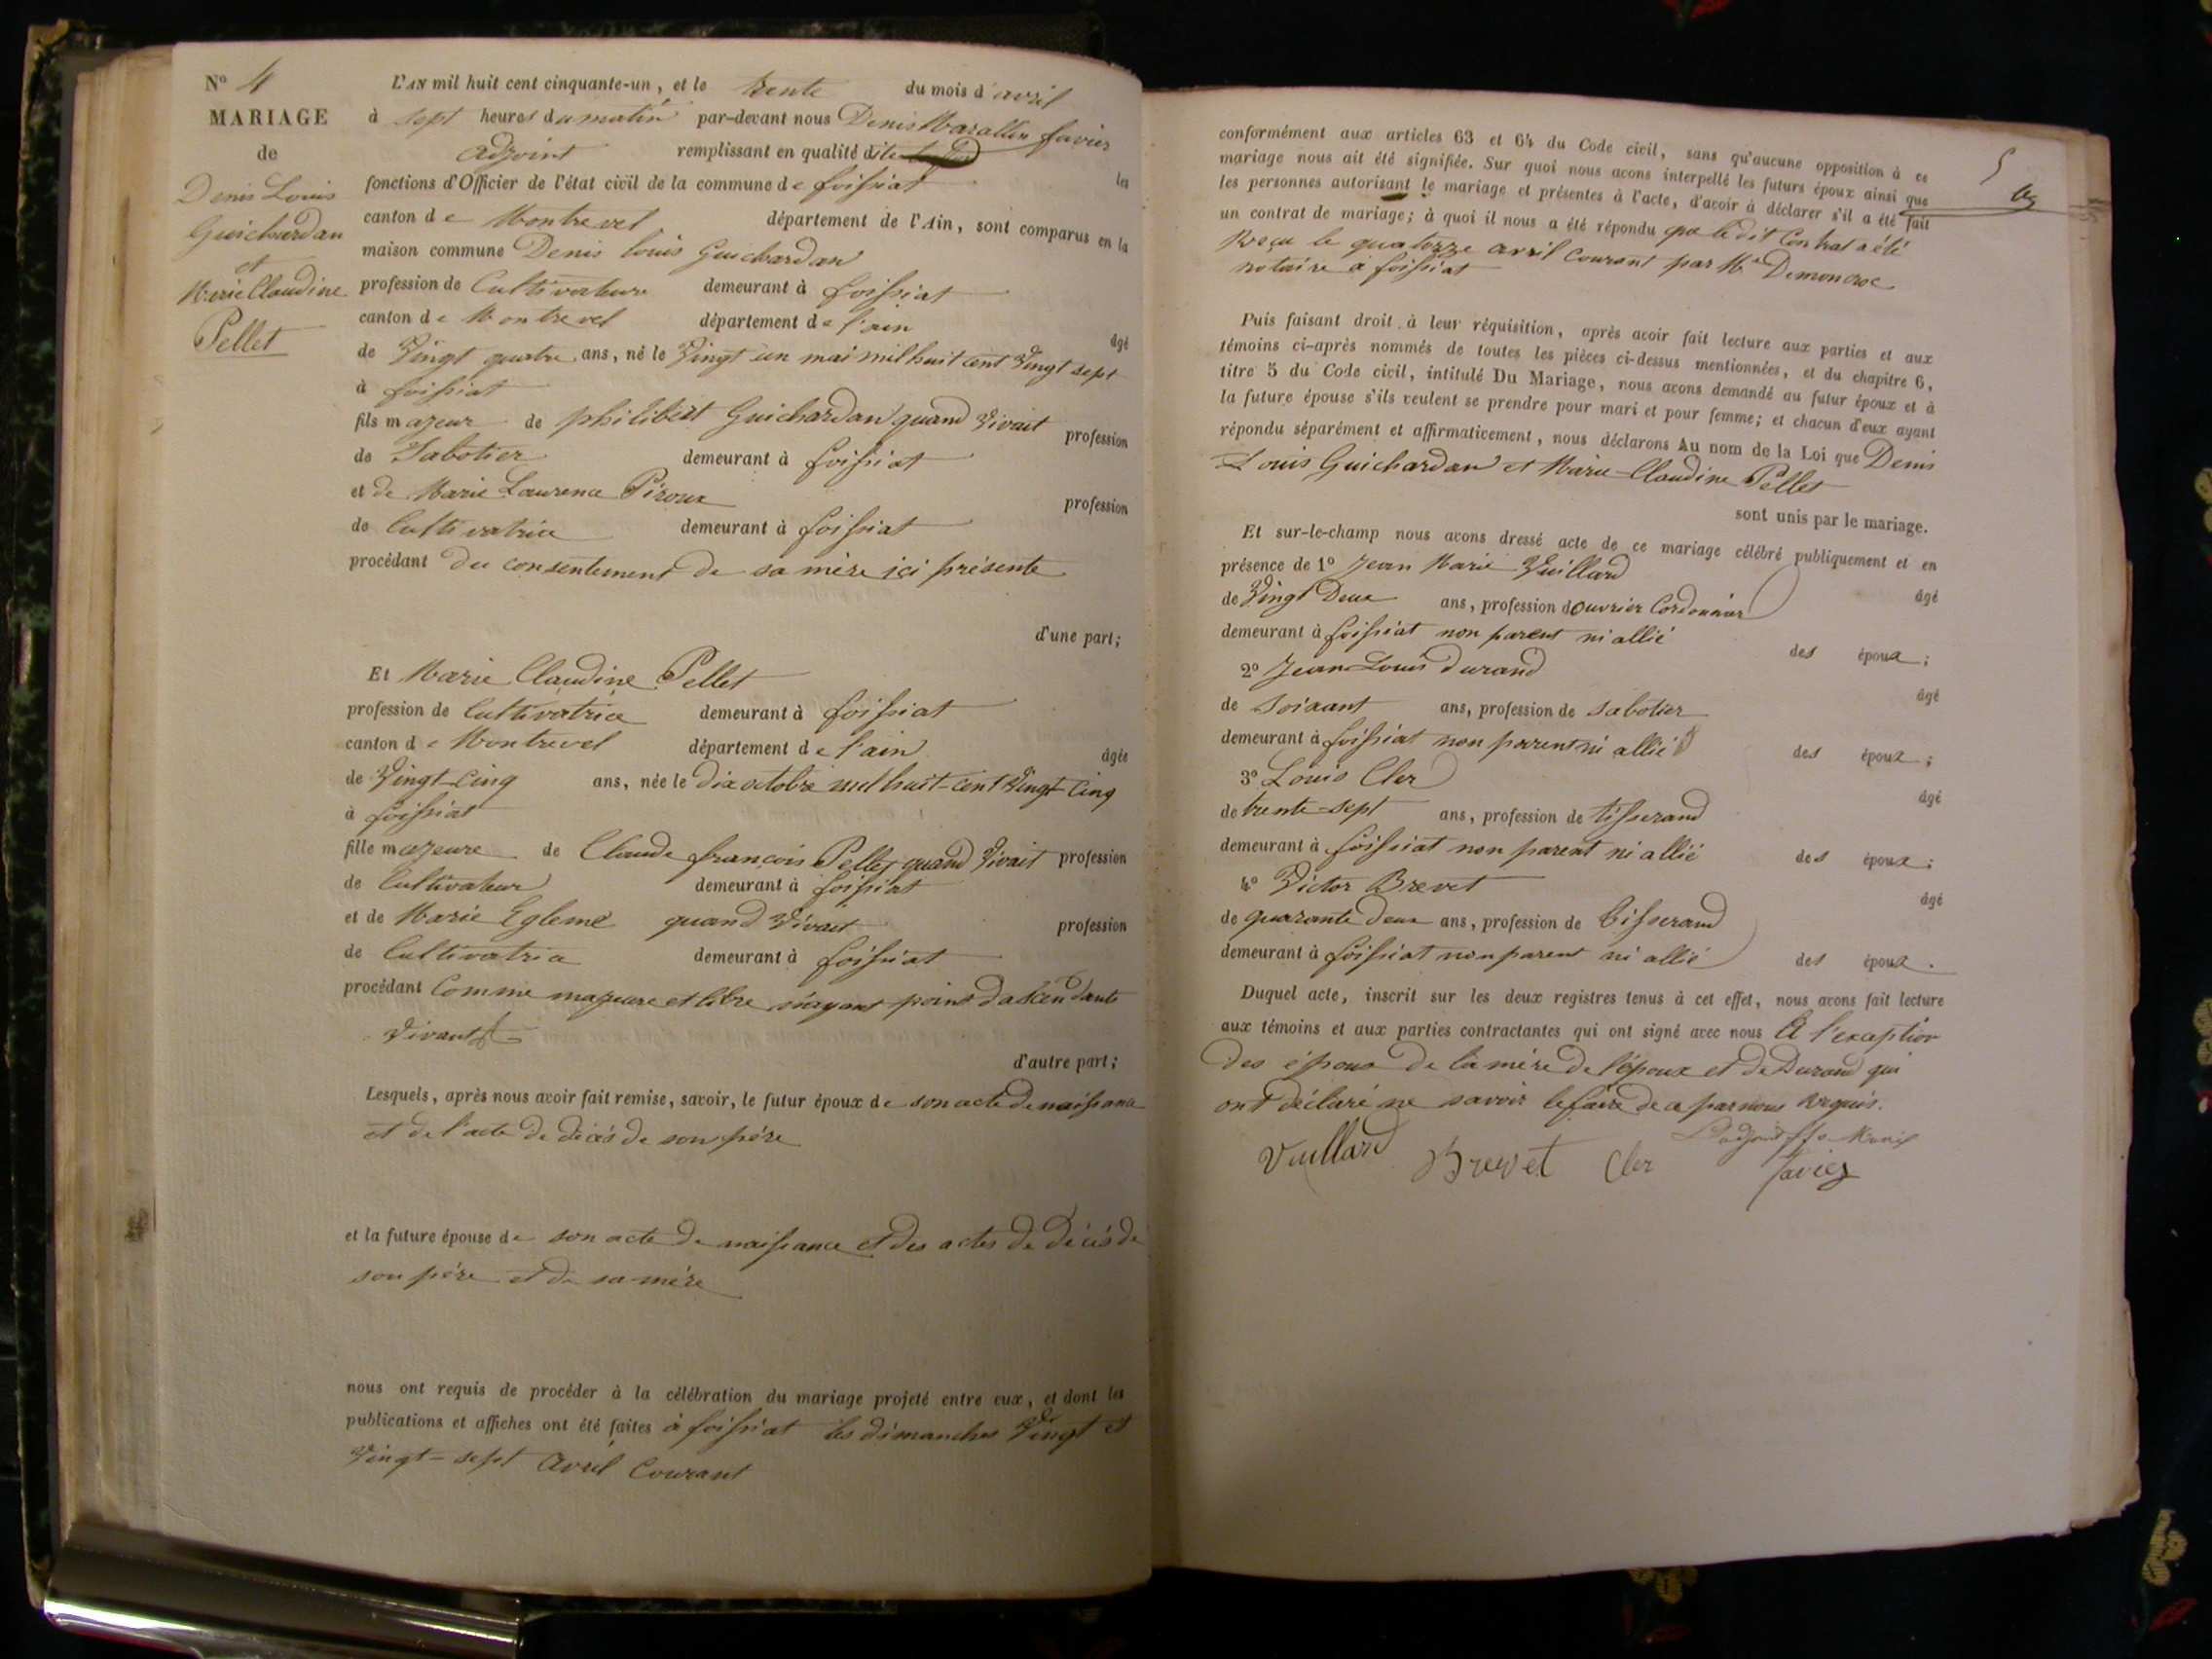 N° 4
MARIAGE
de
Denis Louis
Guichardan
et
Marie Claudine
Pellet
L'AN mil huit cent cinquante-un, et le trente du mois d'avril
à sept heures du matin par-devant nous Denis Favier
adjoint remplissant en qualité
fonctions d'Officier de l'état civil de la commune de foissiat les
canton de Montrevel département de l'Ain, sont comparus en la
maison commune Denis Louis Guichardan
profession de Cultivateur demeurant à foissiat
canton de Montrevel département de l'ain
âgé
de Vingt quatre ans, né le Vingt un mai mil huit cent Vingt sept
à foissiat
fils majeur de philibert Guichardan quand Vivait profession
de Sabotier demeurant à foissiat
et de Marie Laurence Piroux profession
de Cultivatrice demeurant à foissiat
procédant du consentement de sa mère ici présente
d'une part;
Et Marie Claudine Pellet
profession de Cultivatrice demeurant à foissiat
canton de Montrevel département de l'ain âgée
de Vingt-Cinq ans, née le dix octobre mil huit-cent Vingt-Cinq
à foissiat
fille majeure de Claude françois Pellet quand Vivait profession
de Cultivateur demeurant à foissiat
et de Marie Egleme quand Vivait profession
de Cultivatrice demeurant à foissiat
procédant Comme majeure et libre n'ayant point d'ascendants
Vivants
d'autre part;
Lesquels, après nous avoir fait remise, savoir, le futur époux de son acte de naissance
et de l'acte de décès de son père
et la future épouse de son acte de naissance et des actes de décès de
son père et de sa mère
nous ont requis de procéder à la célébration du mariage projeté entre eux, et dont les
publications et affiches ont été faites à foissiat les dimanches Vingt et
Vingt-sept Avril Courant
5
conformément aux articles 63 et 64 du Code civil, sans qu'aucune opposition à ce
mariage nous ait été signifiée. Sur quoi nous avons interpellé les futurs époux ainsi que
les personnes autorisant le mariage et présentes à l'acte, d'avoir à déclarer s'il a été fait
un contrat de mariage; à quoi il nous a été répondu que le dit Contrat a été
Reçu le quatorze avril Courant par Me Demoncroc
notaire à foissiat
Puis faisant droit à leur réquisition, après avoir fait lecture aux parties et aux
témoins ci-après nommés de toutes les pièces ci-dessus mentionnées, et du chapitre 6,
titre 5 du Code civil, intitulé Du Mariage, nous avons demandé au futur époux et à
la future épouse s'ils veulent se prendre pour mari et pour femme; et chacun d'eux ayant
répondu séparément et affirmativement, nous déclarons Au nom de la Loi que Denis
Louis Guichardan et Marie-Claudine Pellet
sont unis par le mariage.
Et sur-le-champ nous avons dressé acte de ce mariage célébré publiquement et en
présence de 1° Jean Marie Vuillard
âgé
de Vingt Deux ans, profession d'ouvrier Cordonnier
demeurant à foissiat non parent ni allié des époux;
2° Jean Louis durand
âgé
de soixant ans, profession de sabotier
demeurant à foissiat non parent ni allié des époux;
3° Louis Cler
âgé
de trente-sept ans, profession de tisserand
demeurant à foissiat non parent ni allié des époux;
4° Victor Brevet
âgé
de quarante deux ans, profession de tisserand
demeurant à foissiat non parent ni allié des époux.
Duquel acte, inscrit sur les deux registres tenus à cet effet, nous avons fait lecture
aux témoins et aux parties contractantes qui ont signé avec nous à l'exception
des époux de la mère de l'époux et de Durand qui
ont déclaré ne savoir le faire de ce par nous Requis.
Vuillard Brevet Cler Favier